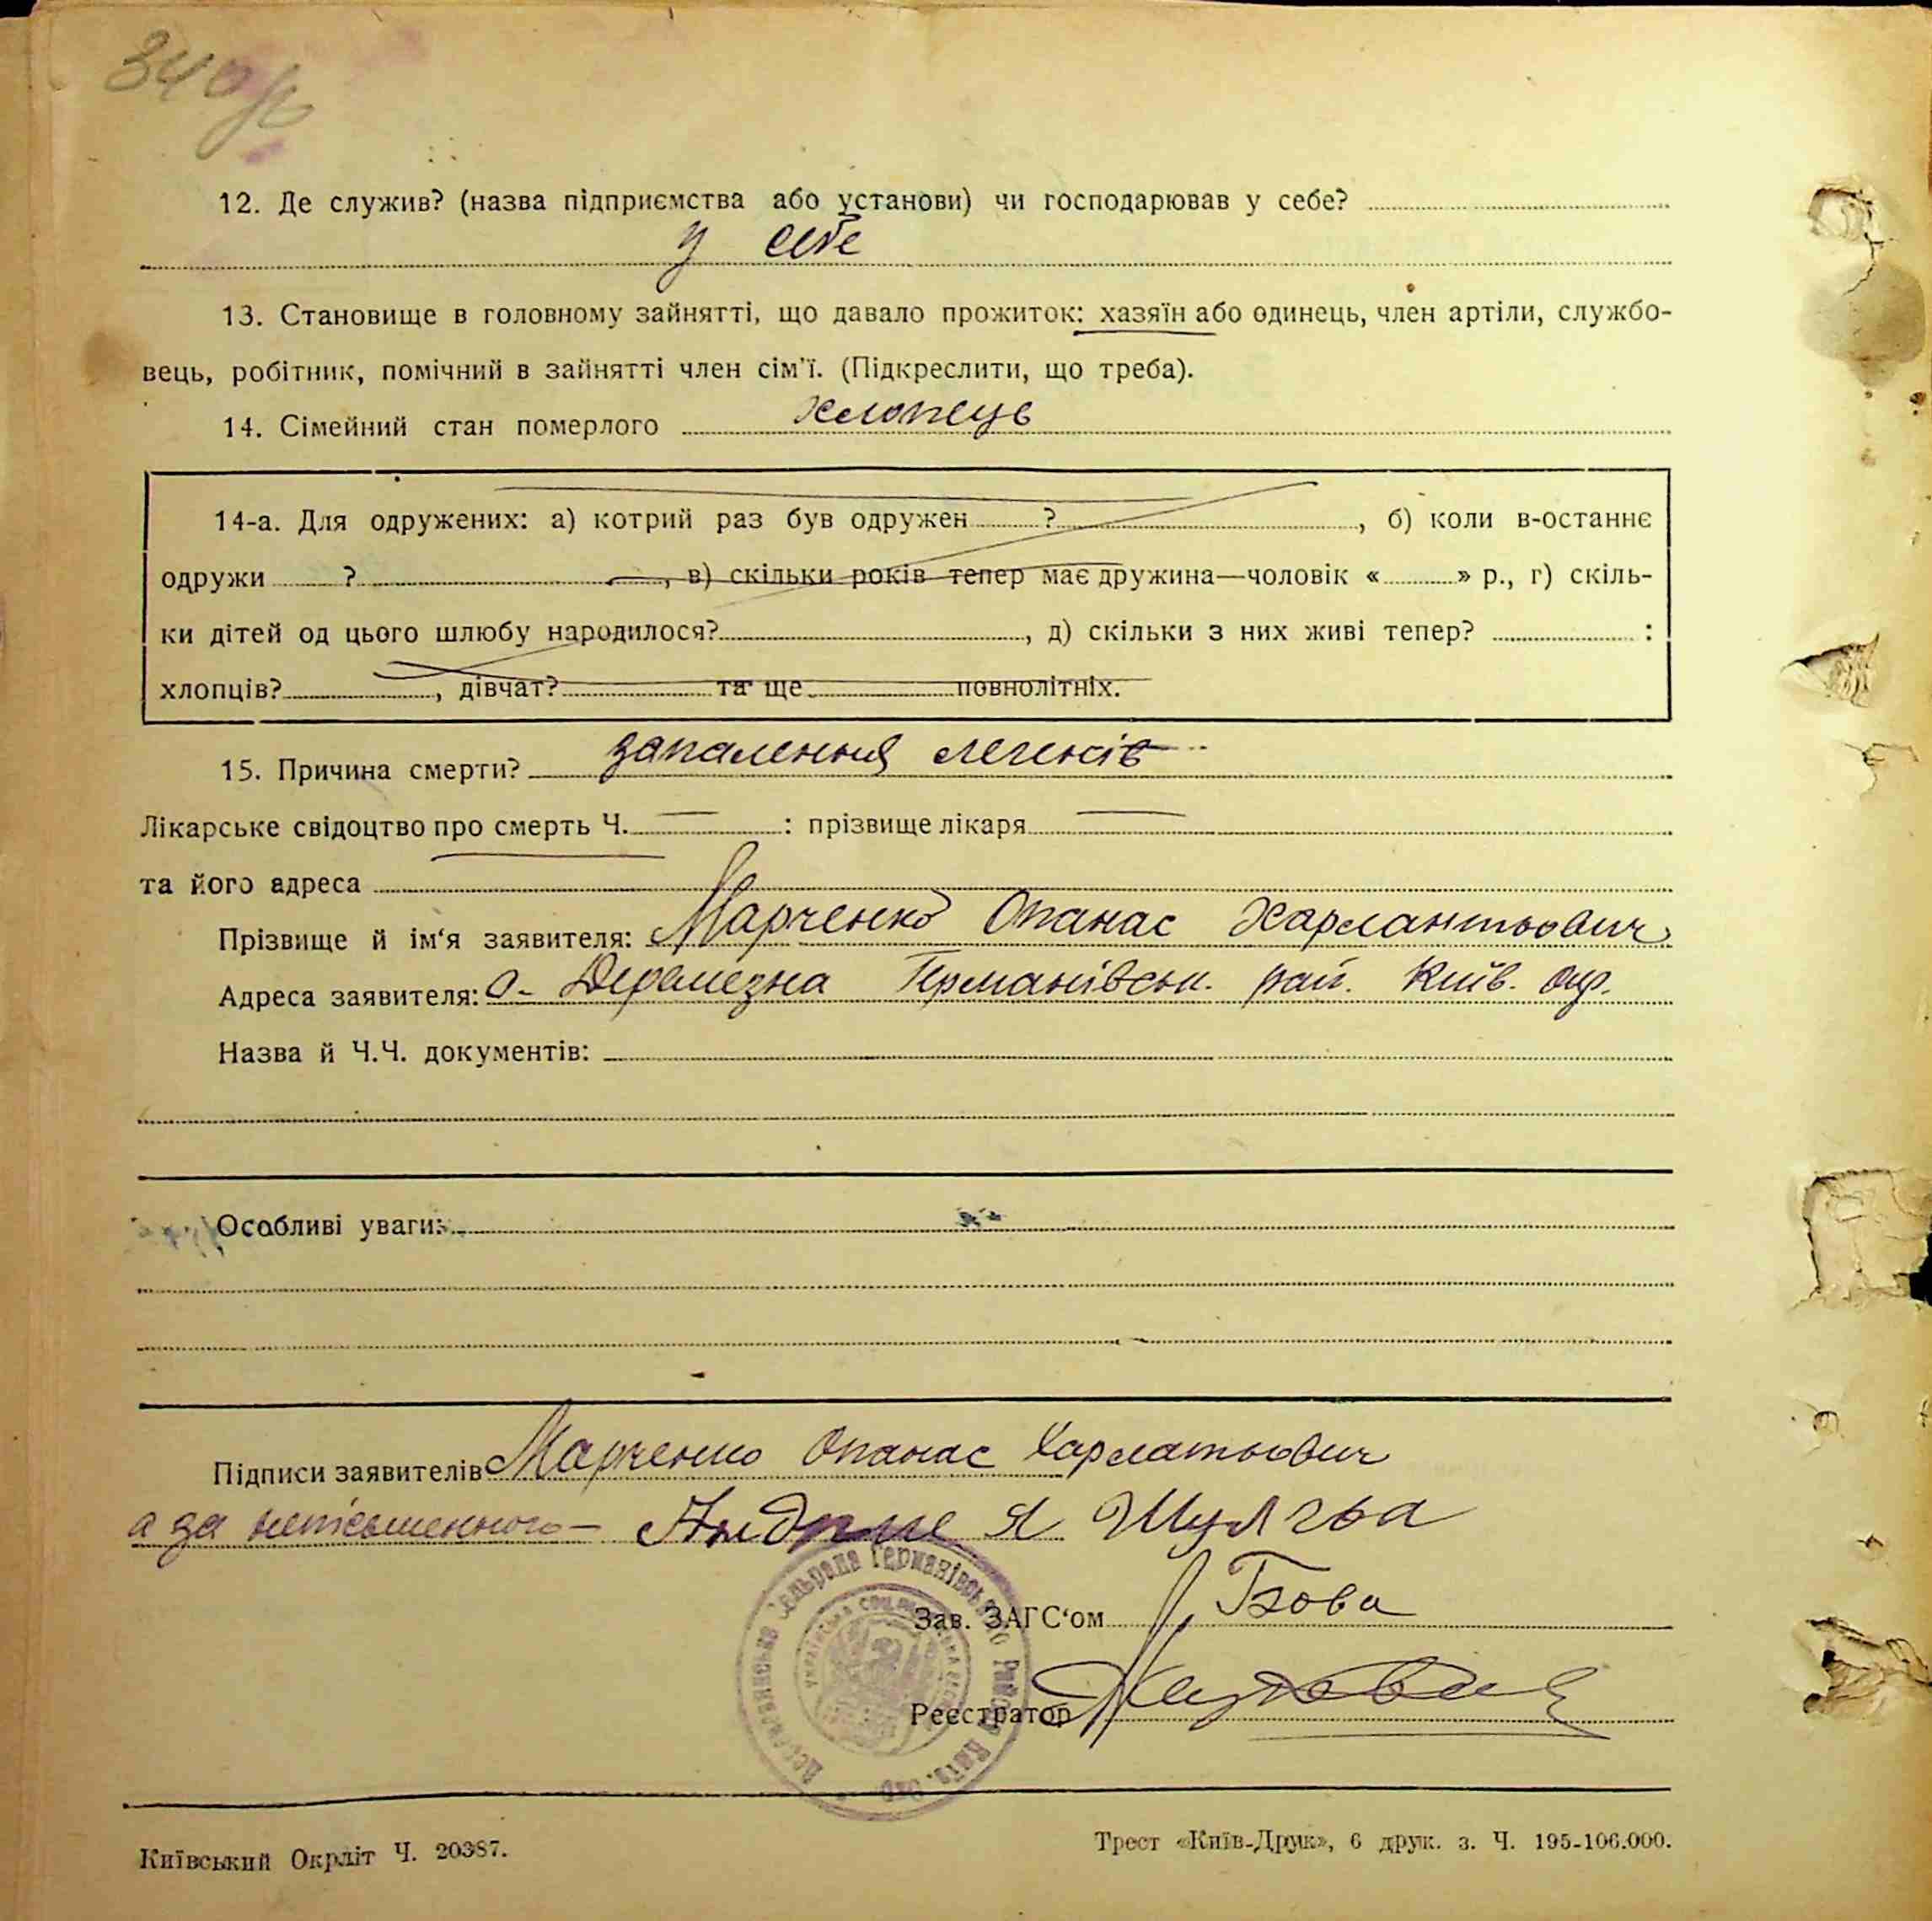 340
12. Де служив? (назва підприємства або установи) чи господарював у себе?
у себе
13. Становище в головному зайнятті, що давало прожиток: хазяїн або одинець, член артіли, службо-
вець, робітник, помічний в зайнятті член сім'ї. (Підкреслити, що треба).
14. Сімейний стан померлого хлопець
14-а. Для одружених: а) котрий раз був одружен ? , б) коли в-останнє
одружи ? , в) скільки років тепер має дружина—чоловік « » р., г) скіль-
ки дітей од цього шлюбу народилося? , д) скільки з них живі тепер? :
хлопців? , дівчат? та ще повнолітніх.
15. Причина смерти? запалення легенів
Лікарське свідоцтво про смерть Ч. : прізвище лікаря
та його адреса
Прізвище й ім'я заявителя: Марченко Опанас Харлантьович
Адреса заявителя: с. Деремезна Германівськ. рай. Київ. окр.
Назва й Ч.Ч. документів:
Особливі уваги:
Підписи заявителів Марченко Опанас Харлатьович
а за неписьменного — Я Шулга
Зав. ЗАГС'ом Бова
Реєстратор
Деремезнянська Сельрада Германівського Району Київ. Окр.
Київський Окрліт Ч. 20387.
Трест «Київ-Друк», 6 друк. з. Ч. 195-106.000.